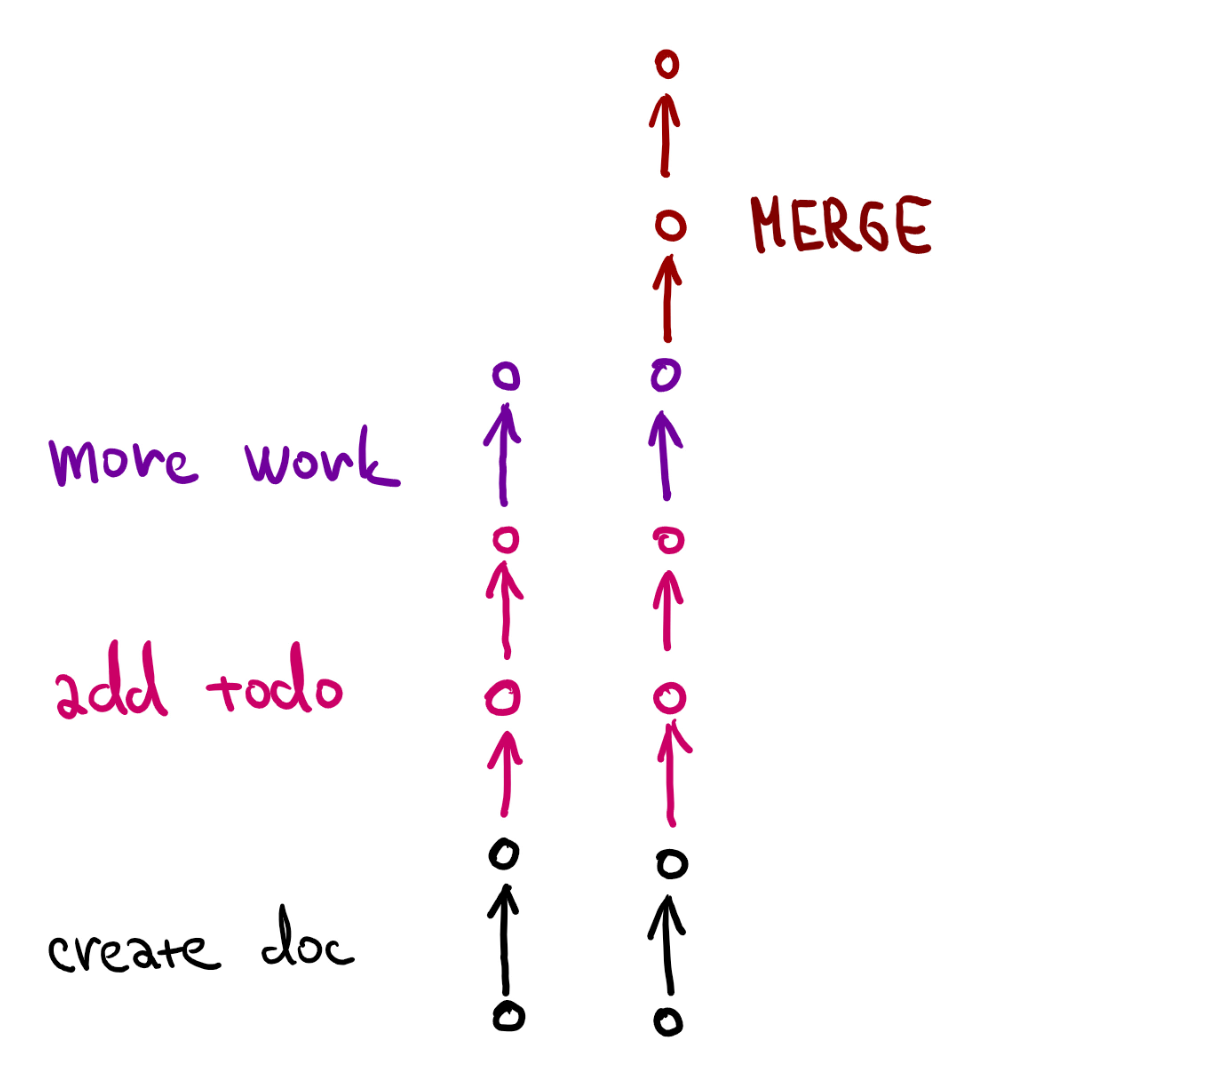 MERGE
more work
add todo
create doc